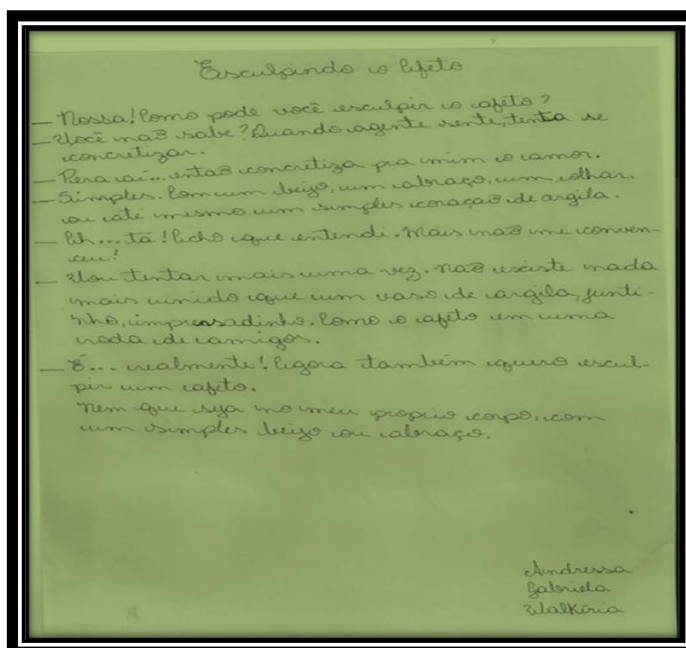 Esculpindo o Afeto
— Nossa! Como pode você esculpir o afeto?
— Você não sabe? Quando agente sente, tenta se
concretizar.
— Pera aí... então concretiza pra mim o amor.
— Simples. Com um beijo, um abraço, um olhar,
ou até mesmo um simples coração de argila.
— Ah... tá! Acho que entendi. Mais não me conven-
ceu!
— Vou tentar mais uma vez. Não existe nada
mais unido que um vaso de argila, junti-
nho, imprensadinho. Como o afeto em uma
roda de amigos.
— É... realmente! Agora também quero escul-
pir um afeto.
Nem que seja no meu propio corpo, com
um simples beijo ou abraço.
Andressa
Gabriela
Walkíria